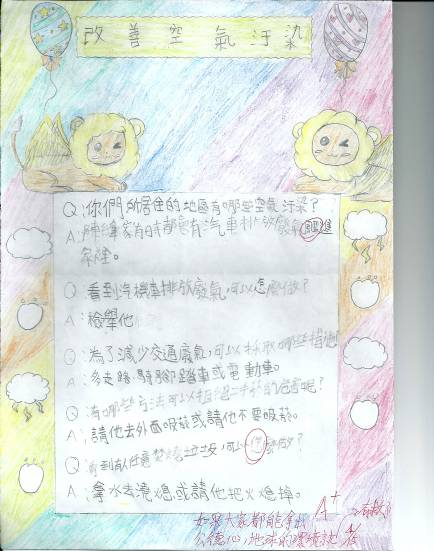 改善空氣汙染
Q：你們所居住的地區有哪些空氣汙染？
A：家有時都會有汽車排放廢氣飄進
家裡。
Q：看到汽機車排放廢氣，可以怎麼做？
A：檢舉他
Q：為了減少交通廢氣，可以採取哪些措施
A：多走路、騎腳踏車或電動車。
Q：有哪些方法可以拒絕二手菸的危害呢？
A：請他去外面吸菸或請他不要吸菸。
Q：看到有人任意焚燒垃圾，可以怎麼做？
A：拿水去澆熄或請他把火熄掉。
A+
如果大家都能拿出
公德心，地球的環境就